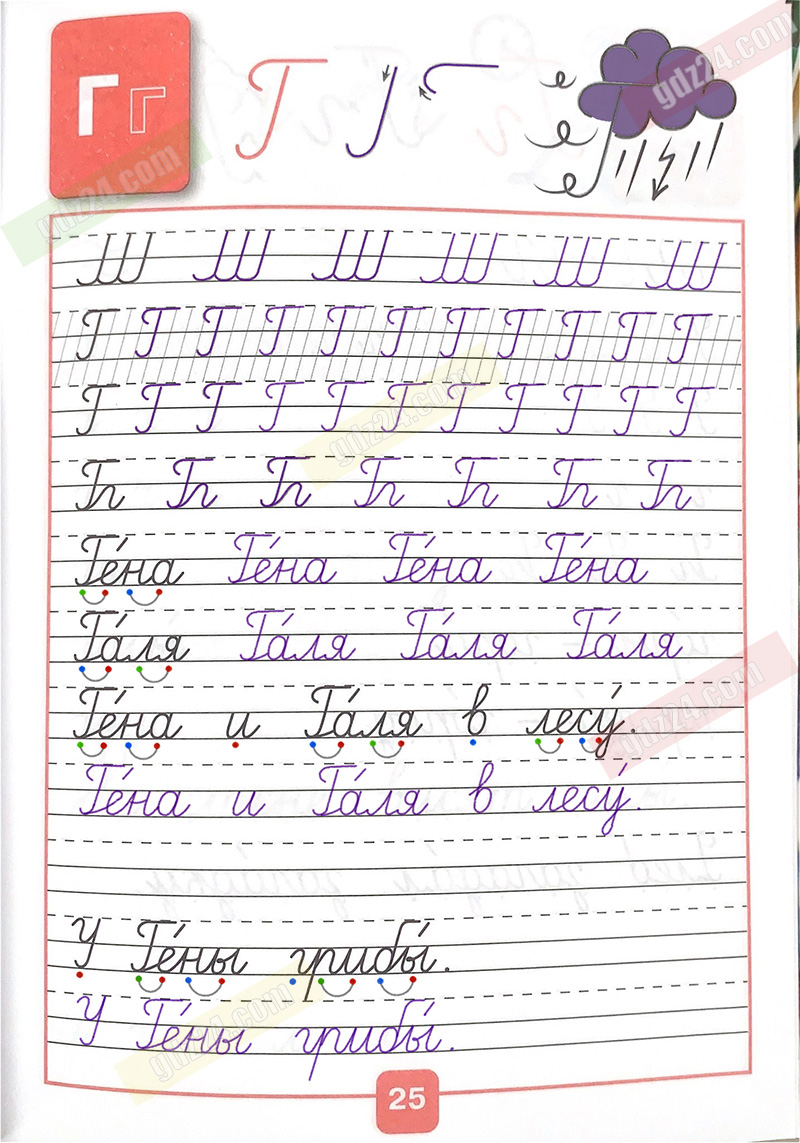 Г г Г
gdz24.com
gdz24.com
Г Г Г Г Г Г Г Г Г Г Г
Г Г Г Г Г Г Г Г Г Г Г
gdz24.com
Ге́на Ге́на Ге́на Ге́на
Га́ля Га́ля Га́ля Га́ля
Ге́на и Га́ля в лесу́.
gdz24.com
Ге́на и Га́ля в лесу́.
У Ге́ны грибы́.
У Ге́ны грибы́.
gdz24.com
25